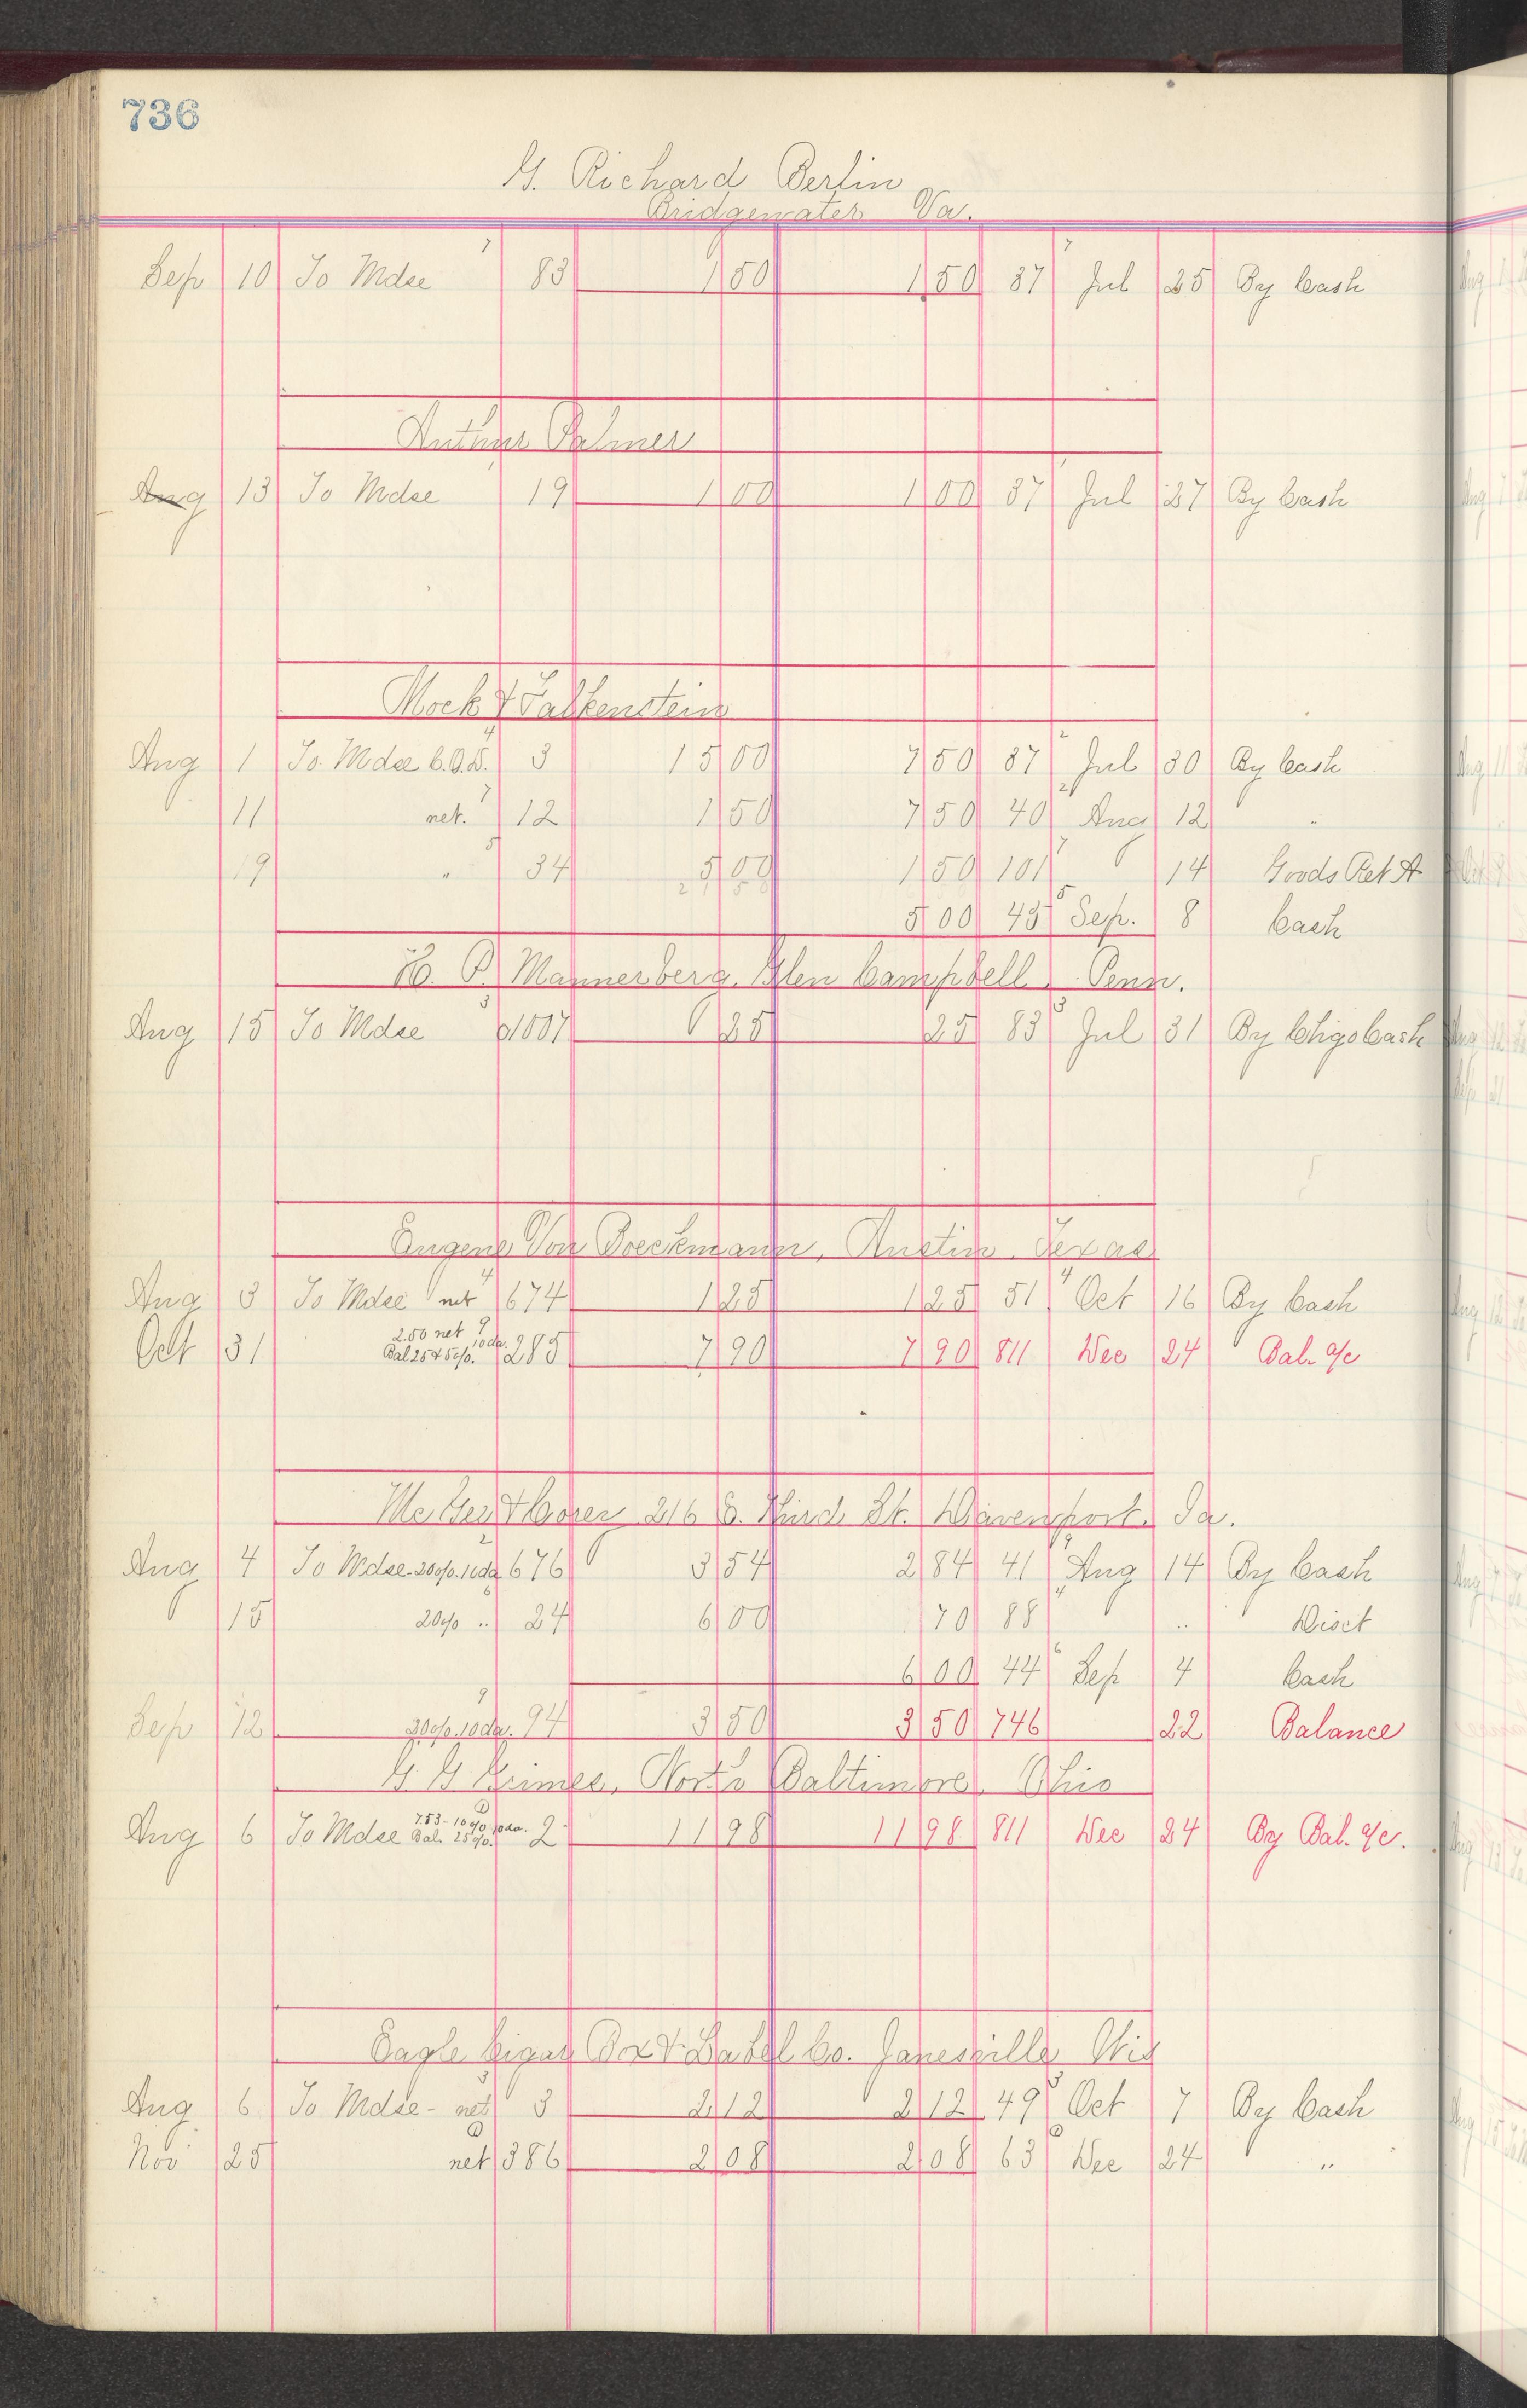 736
G. Richard Berlin
Bridgewater Va.
Sep 10 To Mdse 7 83 1 50 1 50 37 7 Jul 25 By Cash
Arthur Palmer
Aug 13 To Mdse 19 1 00 1 00 37 Jul 27 By Cash
Mock & Falkenstein
Aug 1 To Mdse C.O.D. 4 3 15 00 7 50 37 2 Jul 30 By Cash
11 net. 7 12 1 50 7 50 40 2 Aug 12 "
19 " 5 34 5 00 1 50 101 7 14 Goods Ret A
21 50
5 00 45 5 Sep. 8 Cash
H. P. Mannerberg. Glen Campbell Penn.
Aug 15 To Mdse 3 1007 25 25 83 3 Jul 31 By Chgo Cash
Eugene Von Boeckmann, Austin Texas
Aug 3 To Mdse net 4 674 1 25 1 25 51 4 Oct 16 By Cash
Oct 31 2.50 net 9 Bal 25 & 5% 10 da. 285 7 90 7 90 811 Dec 24 Bal. a/c
216 E. Third St. Davenport Ia.
Aug 4 To Mdse - 20% 10 da 2 676 3 54 2 84 41 9 Aug 14 By Cash
15 20% " 6 24 6 00 70 88 " Disct
6 00 44 6 Sep 4 Cash
Sep 12 20% 10 da. 9 94 3 50 3 50 746 22 Balance
G. G. Grimes, North Baltimore, Ohio
Aug 6 To Mdse 7.53 - 10% 10 da. Bal. 25%. 2 11 98 11 98 811 Dec 24 By Bal. a/c.
Eagle Cigar Box & Label Co. Janesville Wis
Aug 6 To Mdse - net 3 3 2 12 2 12 49 3 Oct 7 By Cash
Nov 25 net 386 2 08 2 08 63 Dec 24 "